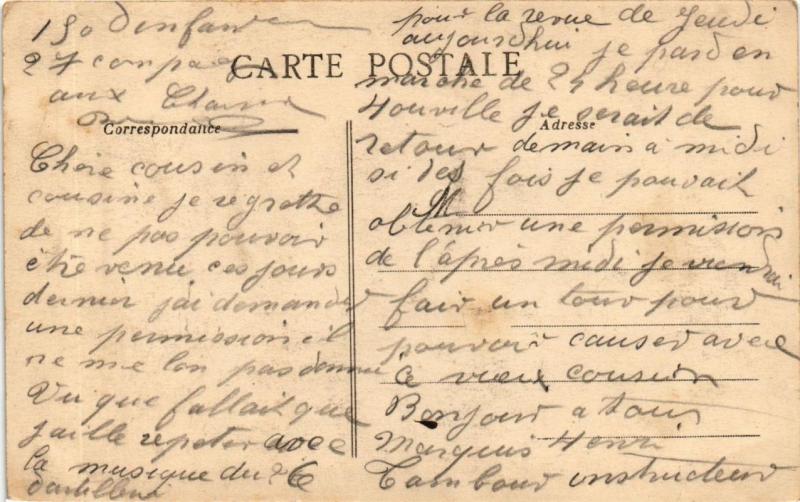 130 d'infan
27 compa
aux
CARTE POSTALE
Correspondance
Chère cousin et
cousine je regrette
de ne pas pouvoir
être venu ces jours
dernier j'ai demander
une permission il
ne me lon pas donné
Vu que fallait que
j'aille repeter avec
la musique du 26
d'artillerie
pour la revue de Jeudi
aujourdhui je pard en
marche de 24 heure pour
je serait de
Adresse
retour demain a midi
si des fois je pouvait
obtenir une permission
de l'après midi je viendrai
fair un tour pour
pouvoir causer avec
le vieux cousin
Bonjour a tous
Marquis Henri
Tambour instructeur